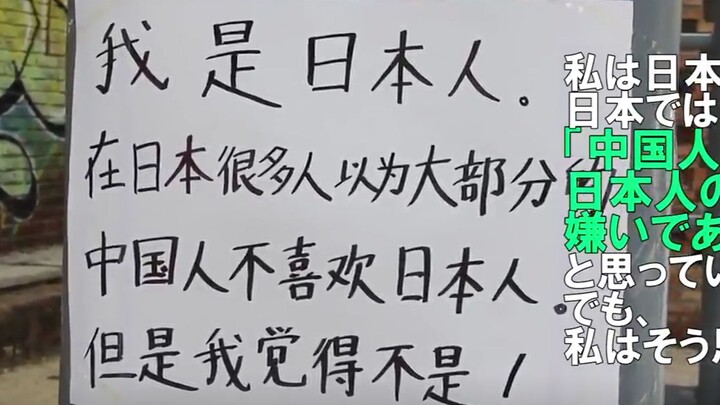 我是日本人。
在日本很多人以为大部分的
中国人不喜欢日本人.
但是我觉得不是!
私は日本
日本では
「中国人
日本人の
嫌いであ
と思ってい
でも、
私はそう思